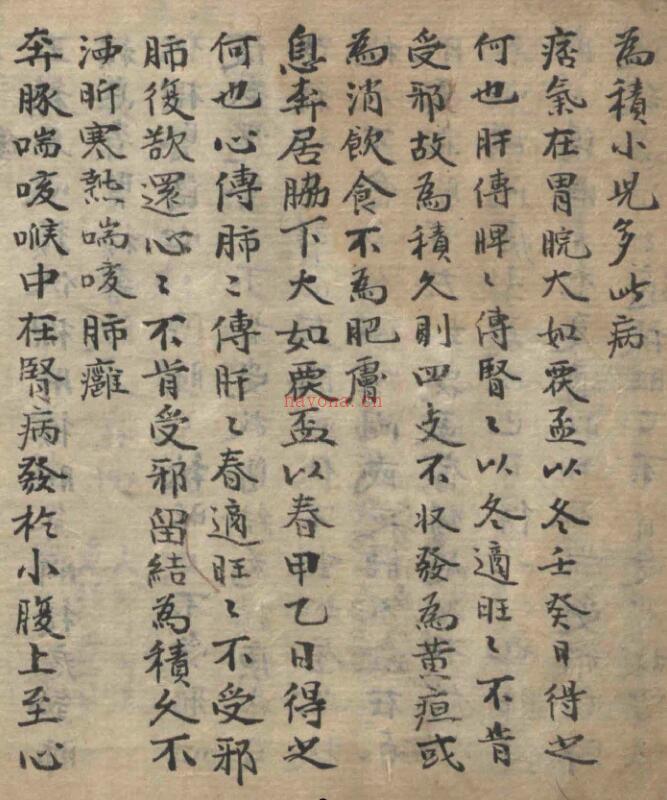 為積小兒多此病
痞氣在胃脘大如覆盃以冬壬癸日得之
何也肝傳脾〻傳腎〻以冬適旺〻不肯
受邪故為積久則四支不收發為黃疸或
為消飲食不為肥膚
息奔居脇下大如覆盃以春甲乙日得之
何也心傳肺〻傳肝〻春適旺〻不受邪
肺復欲還心〻不肯受邪留結為積久不
洒昕寒熱喘咳肺癰
奔豚喘咳喉中在腎病發於小腹上至心
nayona.cn